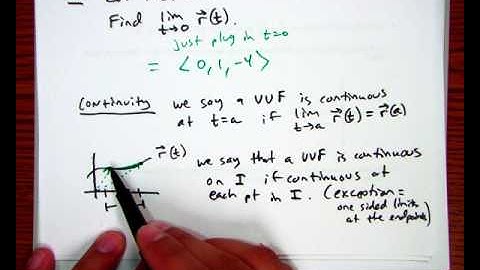 Find lim t→0 r⃗(t).
just plug in t=0
= <0, 1, -4>
Continuity we say a VVF is continuous
at t=a if lim t→a r⃗(t) = r⃗(a)
r⃗(t)
we say that a VVF is continuous
on I if continuous at
each pt in I. (exception =
one sided limits
at the endpoints)